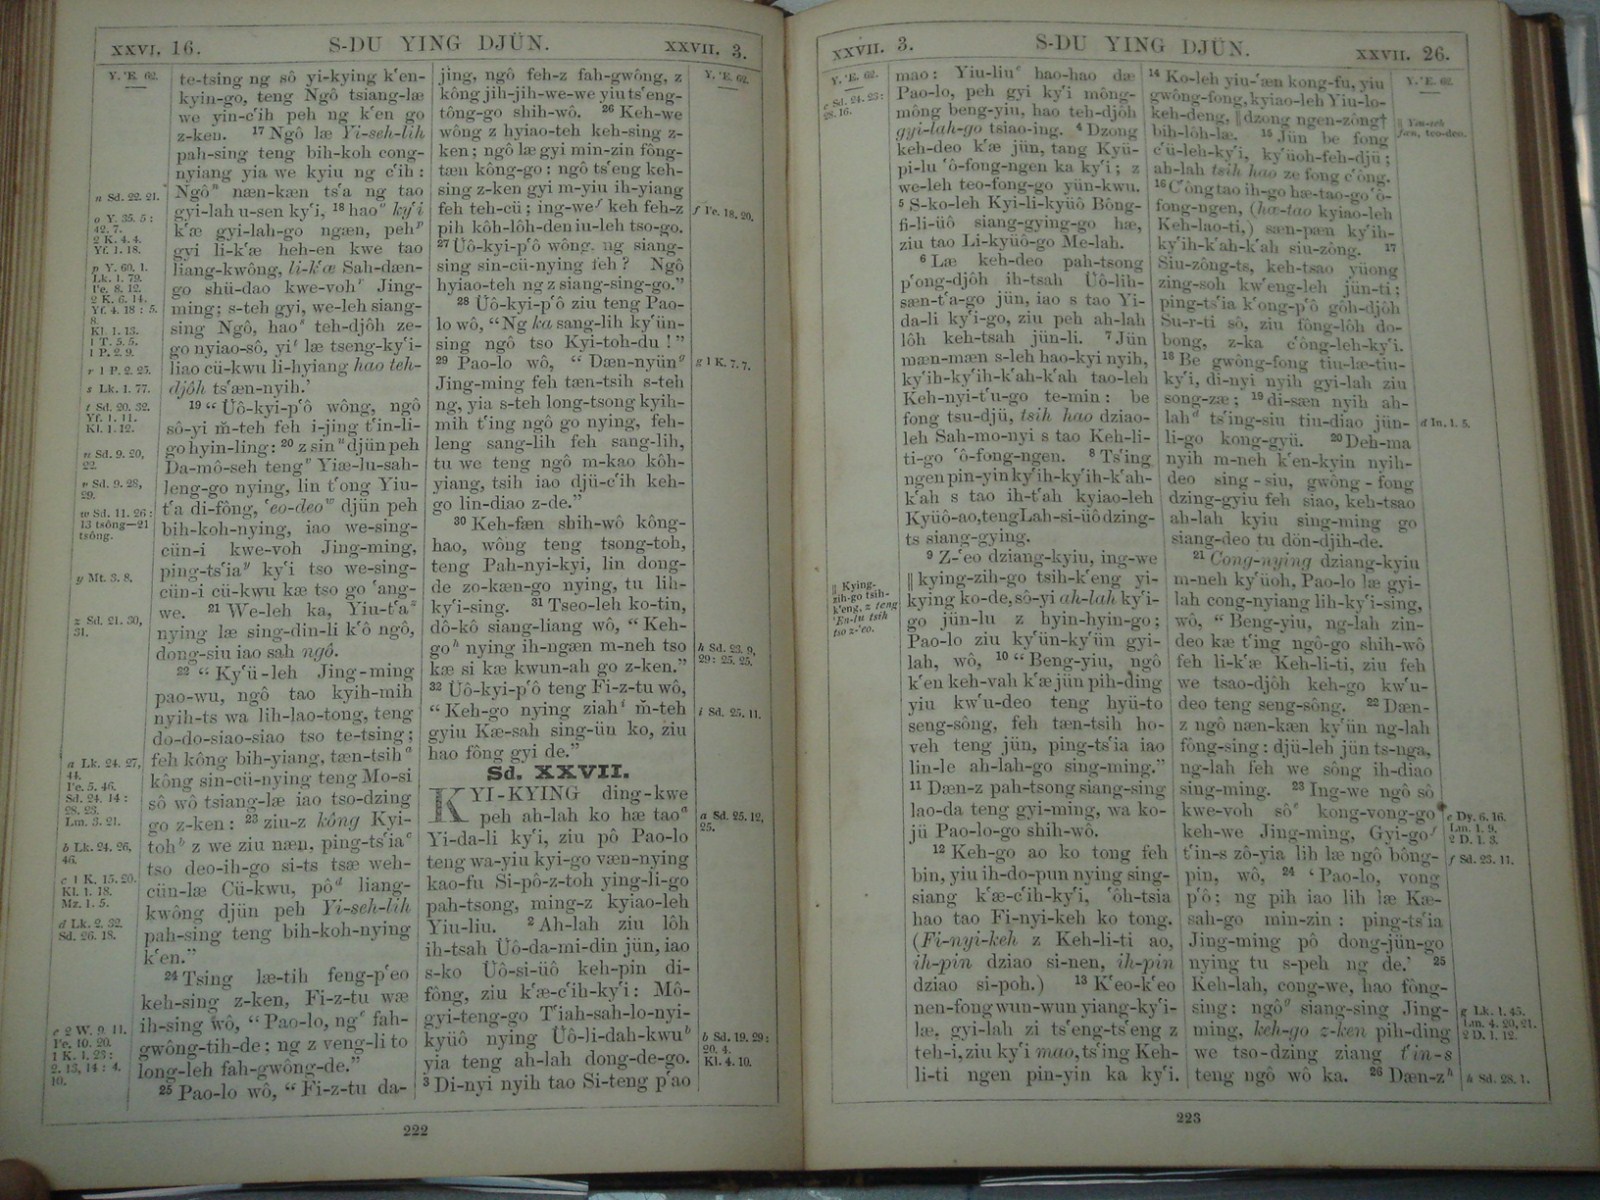 XXVI. 16.
S-DU YING DJÜN.
XXVII. 3.
Y. 'E. 62.
n Sd. 22. 21.
o Y. 35. 5 :
42. 7.
2 K. 4. 4.
Yf. 1. 18.
p Y. 60. 1.
Lk. 1. 79.
Fe. 8. 12.
2 K. 6. 14.
Yf. 4. 18 : 5.
8.
Kl. 1. 13.
1 T. 5. 5.
1 P. 2. 9.
r 1 P. 2. 25.
s Lk. 1. 77.
t Sd. 20. 32.
Yf. 1. 11.
Kl. 1. 12.
u Sd. 9. 20,
22.
v Sd. 9. 28,
29.
w Sd. 11. 26 :
13 tsông—21
tsông.
y Mt. 3. 8.
z Sd. 21. 30,
31.
a Lk. 24. 27,
44.
Fe. 5. 46.
Sd. 24. 14 :
28. 23.
Lm. 3. 21.
b Lk. 24. 26,
46.
c 1 K. 15. 20.
Kl. 1. 18.
Mz. 1. 5.
d Lk. 2. 32.
Sd. 26. 18.
e 2 W. 9. 11.
Fe. 10. 20.
1 K. 1. 23 :
2. 13, 14 : 4.
10.
te-tsing ng sô yi-kying k'en-
kyin-go, teng Ngô tsiang-læ
we yin-c'ih peh ng k'en go
z-ken. 17 Ngô læ Yi-seh-lih
pah-sing teng bih-koh cong-
nyiang yia we kyiu ng c'ih :
Ngôn næn-kæn ts'a ng tao
gyi-lah u-sen ky'i, 18 haoo ky'i
k'æ gyi-lah-go ngæn, pehp
gyi li-k'æ heh-en kwe tao
liang-kwông, li-k'æ Sah-dæn-
go shü-dao kwe-vohr Jing-
ming; s-teh gyi, we-leh siang-
sing Ngô, haos teh-djôh ze-
go nyiao-sô, yit læ tseng-ky'i-
liao cü-kwu li-hyiang hao teh-
djôh ts'æn-nyih.'
19 “ Üô-kyi-p'ô wông, ngô
sô-yi m̃-teh feh i-jing t'in-li-
go hyin-ling: 20 z sinu djün peh
Da-mô-seh tengv Yiæ-lu-sah-
leng-go nying, lin t'ong Yiu-
t'a di-fông, 'eo-deow djün peh
bih-koh-nying, iao we-sing-
cün-i kwe-voh Jing-ming,
ping-ts'iay ky'i tso we-sing-
cün-i cü-kwu kæ tso go 'ang-
we. 21 We-leh ka, Yiu-t'az
nying læ sing-din-li k'ô ngô,
dong-siu iao sah ngô.
22 “ Ky'ü-leh Jing-ming
pao-wu, ngô tao kyih-mih
nyih-ts wa lih-lao-tong, teng
do-do-siao-siao tso te-tsing;
feh kông bih-yiang, tæn-tsiha
kông sin-cü-nying teng Mo-si
sô wô tsiang-læ iao tso-dzing
go z-ken : 23 ziu-z kông Kyi-
tohb z we ziu næn, ping-ts'iac
tso deo-ih-go si-ts tsæ weh-
cün-læ Cü-kwu, pôd liang-
kwông djün peh Yi-seh-lih
pah-sing teng bih-koh-nying
k'en.”
24 Tsing læ-tih feng-p'eo
keh-sing z-ken, Fi-z-tu wæ
ih-sing wô, “ Pao-lo, nge fah-
gwông-tih-de; ng z veng-li to
long-leh fah-gwông-de.”
25 Pao-lo wô, “ Fi-z-tu da-
jing, ngô feh-z fah-gwông, z
kông jih-jih-we-we yiu ts'eng-
tông-go shih-wô. 26 Keh-we
wông z hyiao-teh keh-sing z-
ken ; ngô læ gyi min-zin fông-
tæn kông-go : ngô ts'eng keh-
sing z-ken gyi m-yiu ih-yiang
feh teh-cü ; ing-wef keh feh-z
pih kôh-lôh-den iu-leh tso-go.
27 Üô-kyi-p'ô wông, ng siang-
sing sin-cü-nying feh ? Ngô
hyiao-teh ng z siang-sing-go.”
28 Üô-kyi-p'ô ziu teng Pao-
lo wô, “ Ng ka sang-lih ky'ün-
sing ngô tso Kyi-toh-du ! ”
29 Pao-lo wô, “ Dæn-nyüng
Jing-ming feh tæn-tsih s-teh
ng, yia s-teh long-tsong kyih-
mih t'ing ngô go nying, feh-
leng sang-lih feh sang-lih,
tu we teng ngô m-kao kôh-
yiang, tsih iao djü-c'ih keh-
go lin-diao z-de.”
30 Keh-fæn shih-wô kông-
hao, wông teng tsong-toh,
teng Pah-nyi-kyi, lin dong-
de zo-kæn-go nying, tu lih-
ky'i-sing. 31 Tseo-leh ko-tin,
dô-kô siang-liang wô, “ Keh-
goh nying ih-ngæn m-neh tso
kæ si kæ kwun-ah go z-ken.”
32 Üô-kyi-p'ô teng Fi-z-tu wô,
“ Keh-go nying ziahi m̃-teh
gyiu Kæ-sah sing-ün ko, ziu
hao fông gyi de.”
Sd. XXVII.
KYI-KYING ding-kwe
peh ah-lah ko hæ taoa
Yi-da-li ky'i, ziu pô Pao-lo
teng wa-yiu kyi-go væn-nying
kao-fu Si-pô-z-toh ying-li-go
pah-tsong, ming-z kyiao-leh
Yiu-liu. 2 Ah-lah ziu lôh
ih-tsah Üô-da-mi-din jün, iao
s-ko Üô-si-üô keh-pin di-
fông, ziu k'æ-c'ih-ky'i : Mô-
gyi-teng-go T'iah-sah-lo-nyi-
kyüô nying Üô-li-dah-kwub
yia teng ah-lah dong-de-go.
3 Di-nyi nyih tao Si-teng p'ao
Y. 'E. 62.
f Fe. 18. 20.
g 1 K. 7. 7.
h Sd. 23. 9,
29 : 25. 25.
i Sd. 25. 11.
a Sd. 25. 12,
25.
b Sd. 19. 29 :
20. 4.
Kl. 4. 10.
222
XXVII. 3.
S-DU YING DJÜN.
XXVII. 26.
Y. 'E. 62.
c Sd. 24. 23 :
28. 16.
|| Kying-
zih-go tsih-
k'eng, z teng
'En-lu tsih
tso z-'eo.
mao : Yiu-liuc hao-hao dæ
Pao-lo, peh gyi ky'i mông-
mông beng-yiu, hao teh-djôh
gyi-lah-go tsiao-ing. 4 Dzong
keh-deo k'æ jün, tang Kyü-
pi-lu 'ô-fong-ngen ka ky'i ; z
we-leh teo-fong-go yün-kwu.
5 S-ko-leh Kyi-li-kyüô Bông-
fi-li-üô siang-gying-go hæ,
ziu tao Li-kyüô-go Me-lah.
6 Læ keh-deo pah-tsong
p'ong-djôh ih-tsah Üô-lih-
sæn-t'a-go jün, iao s tao Yi-
da-li ky'i-go, ziu peh ah-lah
lôh keh-tsah jün-li. 7 Jün
mæn-mæn s-leh hao-kyi nyih,
ky'ih-ky'ih-k'ah-k'ah tao-leh
Keh-nyi-t'u-go te-min : be
fong tsu-djü, tsih hao dziao-
leh Sah-mo-nyi s tao Keh-li-
ti-go 'ô-fong-ngen. 8 Ts'ing
ngen pin-yin ky'ih-ky'ih-k'ah-
k'ah s tao ih-t'ah kyiao-leh
Kyüô-ao, teng Lah-si-üô dzing-
ts siang-gying.
9 Z-'eo dziang-kyiu, ing-we
|| kying-zih-go tsih-k'eng yi-
kying ko-de, sô-yi ah-lah ky'i-
go jün-lu z hyin-hyin-go ;
Pao-lo ziu ky'ün-ky'ün gyi-
lah, wô, 10 “ Beng-yiu, ngô
k'en keh-vah k'æ jün pih-ding
yiu kw'u-deo teng hyü-to
seng-sông, feh tæn-tsih ho-
veh teng jün, ping-ts'ia iao
lin-le ah-lah-go sing-ming.”
11 Dæn-z pah-tsong siang-sing
lao-da teng gyi-ming, wa ko-
jü Pao-lo-go shih-wô.
12 Keh-go ao ko tong feh
bin, yiu ih-do-pun nying sing-
siang k'æ-c'ih-ky'i, 'ôh-tsia
hao tao Fi-nyi-keh ko tong.
(Fi-nyi-keh z Keh-li-ti ao,
ih-pin dziao si-nen, ih-pin
dziao si-poh.) 13 K'eo-k'eo
nen-fong wun-wun yiang-ky'i-
læ, gyi-lah zi ts'eng-ts'eng z
teh-i, ziu ky'i mao, ts'ing Keh-
li-ti ngen pin-yin ka ky'i.
14 Ko-leh yiu-'æn kong-fu, yiu
gwông-fong, kyiao-leh Yiu-lo-
keh-deng, || dzong ngen-zông†
bih-lôh-læ. 15 Jün be fong
c'ü-leh-ky'i, ky'üoh-feh-djü ;
ah-lah tsih hao ze fong c'ông.
16 C'ông tao ih-go hæ-tao-go 'ô-
fong-ngen, (hæ-tao kyiao-leh
Keh-lao-ti,) sæn-pæn ky'ih-
ky'ih-k'ah-k'ah siu-zông. 17
Siu-zông-ts, keh-tsao yüong
zing-soh kw'eng-leh jün-ti ;
ping-ts'ia k'ong-p'ô gôh-djôh
Su-r-ti sô, ziu fông-lôh do-
bong, z-ka c'ông-leh-ky'i.
18 Be gwông-fong tiu-læ-tiu-
ky'i, di-nyi nyih gyi-lah ziu
song-zæ ; 19 di-sæn nyih ah-
lahd ts'ing-siu tiu-diao jün-
li-go kong-gyü. 20 Deh-ma
nyih m-neh k'en-kyin nyih-
deo sing-siu, gwông-fong
dzing-gyiu feh siao, keh-tsao
ah-lah kyiu sing-ming go
siang-deo tu dön-djih-de.
21 Cong-nying dziang-kyiu
m-neh ky'üoh, Pao-lo læ gyi-
lah cong-nyiang lih-ky'i-sing,
wô, “ Beng-yiu, ng-lah zin-
deo kæ t'ing ngô-go shih-wô
feh li-k'æ Keh-li-ti, ziu feh
we tsao-djôh keh-go kw'u-
deo teng seng-sông. 22 Dæn-
z ngô næn-kæn ky'ün ng-lah
fông-sing : djü-leh jün ts-nga,
ng-lah feh we sông ih-diao
sing-ming. 23 Ing-we ngô sô
kwe-voh sôe kong-vong-go
keh-we Jing-ming, Gyi-gof
t'in-s zô-yia lih læ ngô bông-
pin, wô, 24 ‘ Pao-lo, vong
p'ô ; ng pih iao lih læ Kæ-
sah-go min-zin : ping-ts'ia
Jing-ming pô dong-jün-go
nying tu s-peh ng de.' 25
Keh-lah, cong-we, hao fông-
sing : ngôg siang-sing Jing-
ming, keh-go z-ken pih-ding
we tso-dzing ziang t'in-s
teng ngô wô ka. 26 Dæn-zh
Y. 'E. 62.
|| Yiu-teh
fæn, teo-deo.
d In. 1. 5.
e Dy. 6. 16.
Lm. 1. 9.
2 D. 1. 3.
f Sd. 23. 11.
g Lk. 1. 45.
Lm. 4. 20, 21.
2 D. 1. 12.
h Sd. 28. 1.
223